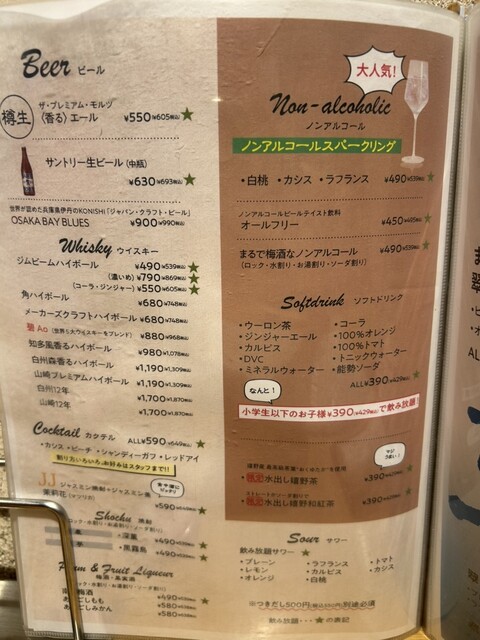 Beer ビール
樽生
ザ・プレミアム・モルツ
〈香る〉エール ¥550(¥605税込)★
サントリー生ビール(中瓶)
¥630(¥693税込)★
世界が認めた兵庫県伊丹のKONISHI「ジャパン・クラフト・ビール」
OSAKA BAY BLUES ¥900(¥990税込)
Whisky ウイスキー
ジムビームハイボール ¥490(¥539税込)★
(濃いめ) ¥790(¥869税込)★
(コーラ・ジンジャー) ¥550(¥605税込)★
角ハイボール ¥680(¥748税込)
メーカーズクラフトハイボール ¥680(¥748税込)
碧Ao (世界5大ウイスキーをブレンド) ¥880(¥968税込)
知多風香るハイボール ¥980(¥1,078税込)
白州森香るハイボール ¥1,190(¥1,309税込)
山崎プレミアムハイボール ¥1,190(¥1,309税込)
白州12年 ¥1,700(¥1,870税込)
山崎12年 ¥1,700(¥1,870税込)
Cocktail カクテル ALL¥590(¥649税込)★
・カシス・ピーチ・シャンディーガフ・レッドアイ
割り方いろいろ、お好みはスタッフまで!!
JJ ジャスミン焼酎+ジャスミン茶
茉莉花(マツリカ) ¥590
Shochu 焼酎
(ロック・水割り・お湯割り・ソーダ割り)
・深薫 ¥490
・黒霧島 ¥490
Plum & Fruit Liqueur
梅酒・果実酒
(ロック・水割り・お湯割り・ソーダ割り)
梅酒 ¥490
あごしもも ¥580
あごしみかん ¥580
大人気!
Non-alcoholic
ノンアルコール
ノンアルコールスパークリング
・白桃 ・カシス ・ラフランス ¥490(¥539税込)★
ノンアルコールビールテイスト飲料
オールフリー ¥450(¥495税込)★
まるで梅酒なノンアルコール ¥490(¥539税込)★
(ロック・水割り・お湯割り・ソーダ割り)
Softdrink ソフトドリンク
・ウーロン茶 ・コーラ
・ジンジャーエール ・100%オレンジ
・カルピス ・100%トマト
・DVC ・トニックウォーター
・ミネラルウォーター ・能勢ソーダ
ALL¥390(¥429税込)★
なんと!
小学生以下のお子様¥390(¥429税込)で飲み放題!
水出し嬉野茶 ¥390(¥429税込)★
水出し嬉野和紅茶 ¥390(¥429税込)★
Sour サワー
飲み放題サワー ★
・プレーン ・ラフランス ・トマト
・レモン ・カルピス ・カシス
・オレンジ ・白桃
※つきだし500円(税込550円)別途必須
飲み放題・・・★の表記